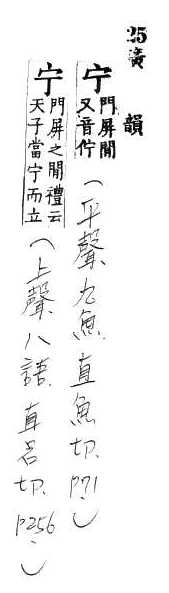 25廣韻
宁 門屏間又音佇 (平聲九魚 直魚切 p71)
宁 門屏之閒禮云天子當宁而立 (上聲八語 直呂切 p256)